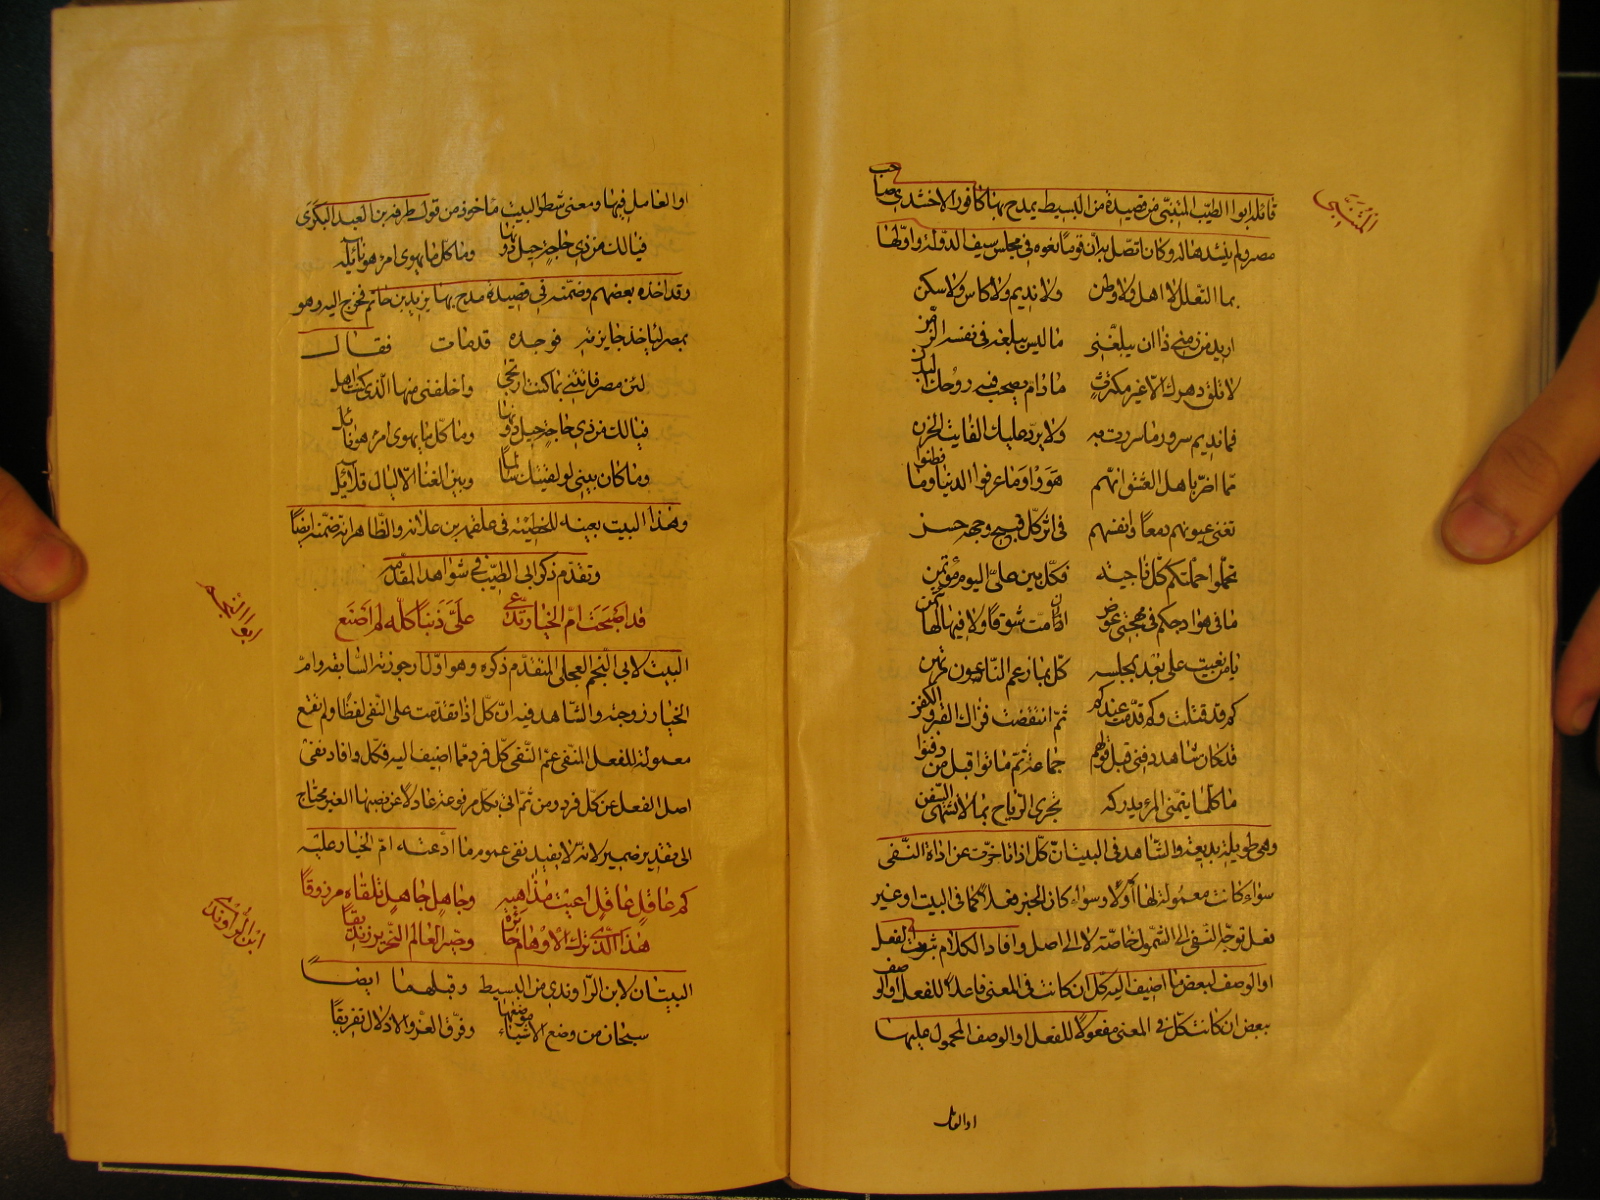 المتنبي
قائله ابوا الطيّب المتنبّى من قصيدة من البسيط يمدح بها كافور الاخشدى صاحب
مصر ولم ينشدها له وكان اتصل به انّ قوما نعوه فى مجلس سيف الدولة واوّلها
بما التعلل لا اهل ولا وطن ولا نديم ولا كاس ولا سكن
اريد من زمنى ذا ان يبلّغنى ما ليس يبلغه فى نفسه الزّمن
لا تلق دهرك الّا غير مكترث ما دام يصحب فيه روحك البدن
فما يديم سرور ما سررت به ولا يردّ عليك الفايت الحزن
ممّا اضرّ باهل العشق انّهم هووا وما عرفوا الدنيا وما فطنوا
تفنى عيونهم دمعًا وانفسهم فى اثر كلّ قبيح وجهه حسن
تحمّلوا حملتكم كلّ ناجية فكلّ بين علىّ اليوم مؤتمن
ما فى هوادجكم فى مهجتى عوض ان متّ شوقًا ولا فيها لها ثمن
يا من نعيت على بعد بمجلسه كلّ بما زعم النّاعون مرتهن
كم قد قتلت وكم قد متّ عندكم ثمّ انتفضت فزال القبر والكفن
قد كان شاهد دفنى قبل قولهم جماعة ثمّ ماتوا قبل من دفنوا
ما كلّما يتمنى المرء يدركه تجرى الرّياح بما لا تشتهى السّفن
وهى طويلة بديعة والشّاهد فى البيت انّ كلّ اذا تاخّرت عن اداة النّفى
سواء كانت معمولة لها أوّلا وسواء كان الخبر فعلًا كما فى البيت او غير
فعل توجّه النّفى الى الشّمول خاصّة لا الى اصل وافاد الكلام ثبوت الفعل
او الوصف لبعض ما اضيف اليه كلّ ان كانت فى المعنى فاعلًا للفعل او الوصف
بعض ان كانت كلّ فى المعنى مفعولًا للفعل او الوصف المحمول عليها
او العامل
او العامل فيها ومعنى شطر البيت ماخوذ من قول طرفة بن العبد البكرى
فيالك من ذى حاجة حيل دونها وما كل ما يهوى امرؤ هو نائله
وقد اخذه بعضهم وضمّنه فى قصيدة مدح بها يزيد بن حاتم فخرج اليه وهو
بمصر لياخذ جايزته فوجده قد مات فقال
لئن مصر فاتتنى بما كنت ارتجى واخلفنى منها الّذى كنت اهل
فيالك من ذى حاجة حيل دونها وما كلّ ما يهوى امرؤ هو نائل
وما كان بينى لو لقيتك سالما وبين الغنا الّا ليال قلائل
وهذا البيت بعينه للحطيئة فى علقمة بن علاثة والظّاهر انه ضمّنه ايضًا
وتقدّم ذكر ابى الطيّب فى شواهد المقدّمة
ابوا النجم
قد اصبحت امّ الخيار تدّعى علىّ ذنبًا كلّه لم اصنع
البيت لابى النّجم العجلى المتقدّم ذكره وهو اوّل ارجوزته السّابقة وامّ
الخيار زوجته والشّاهد فيه انّ كلّ اذا تقدّمت على النّفى لفظًا ولم تقع
معمولة للفعل المنّفى عمّ النّفى كلّ فرد ممّا اضيف اليه فكلّ وافاد نفى
اصل الفعل عن كلّ فرد ومن ثمّ اتى بكلّ مرفوعة عادلا عن نصبها الغير محتاج
الى تقدير ضمير لانّه لا يفيد نفى عموم ما ادّعته امّ الخيار عليه
كم عاقلٍ عاقلٍ اعيت مذاهبه وجاهلٍ جاهلٍ تلقاه مرزوقًا
ابن الراوندى
هذا الّذى ترك الاوهام حائرة وصيّر العالم النّحرير زنديقًا
البيتان لابن الرّاوندى من البسيط وقبلهما ايضًا
سبحان من وضع الاشياء موضعها وفرّق العزّ والاذلال تفريقًا